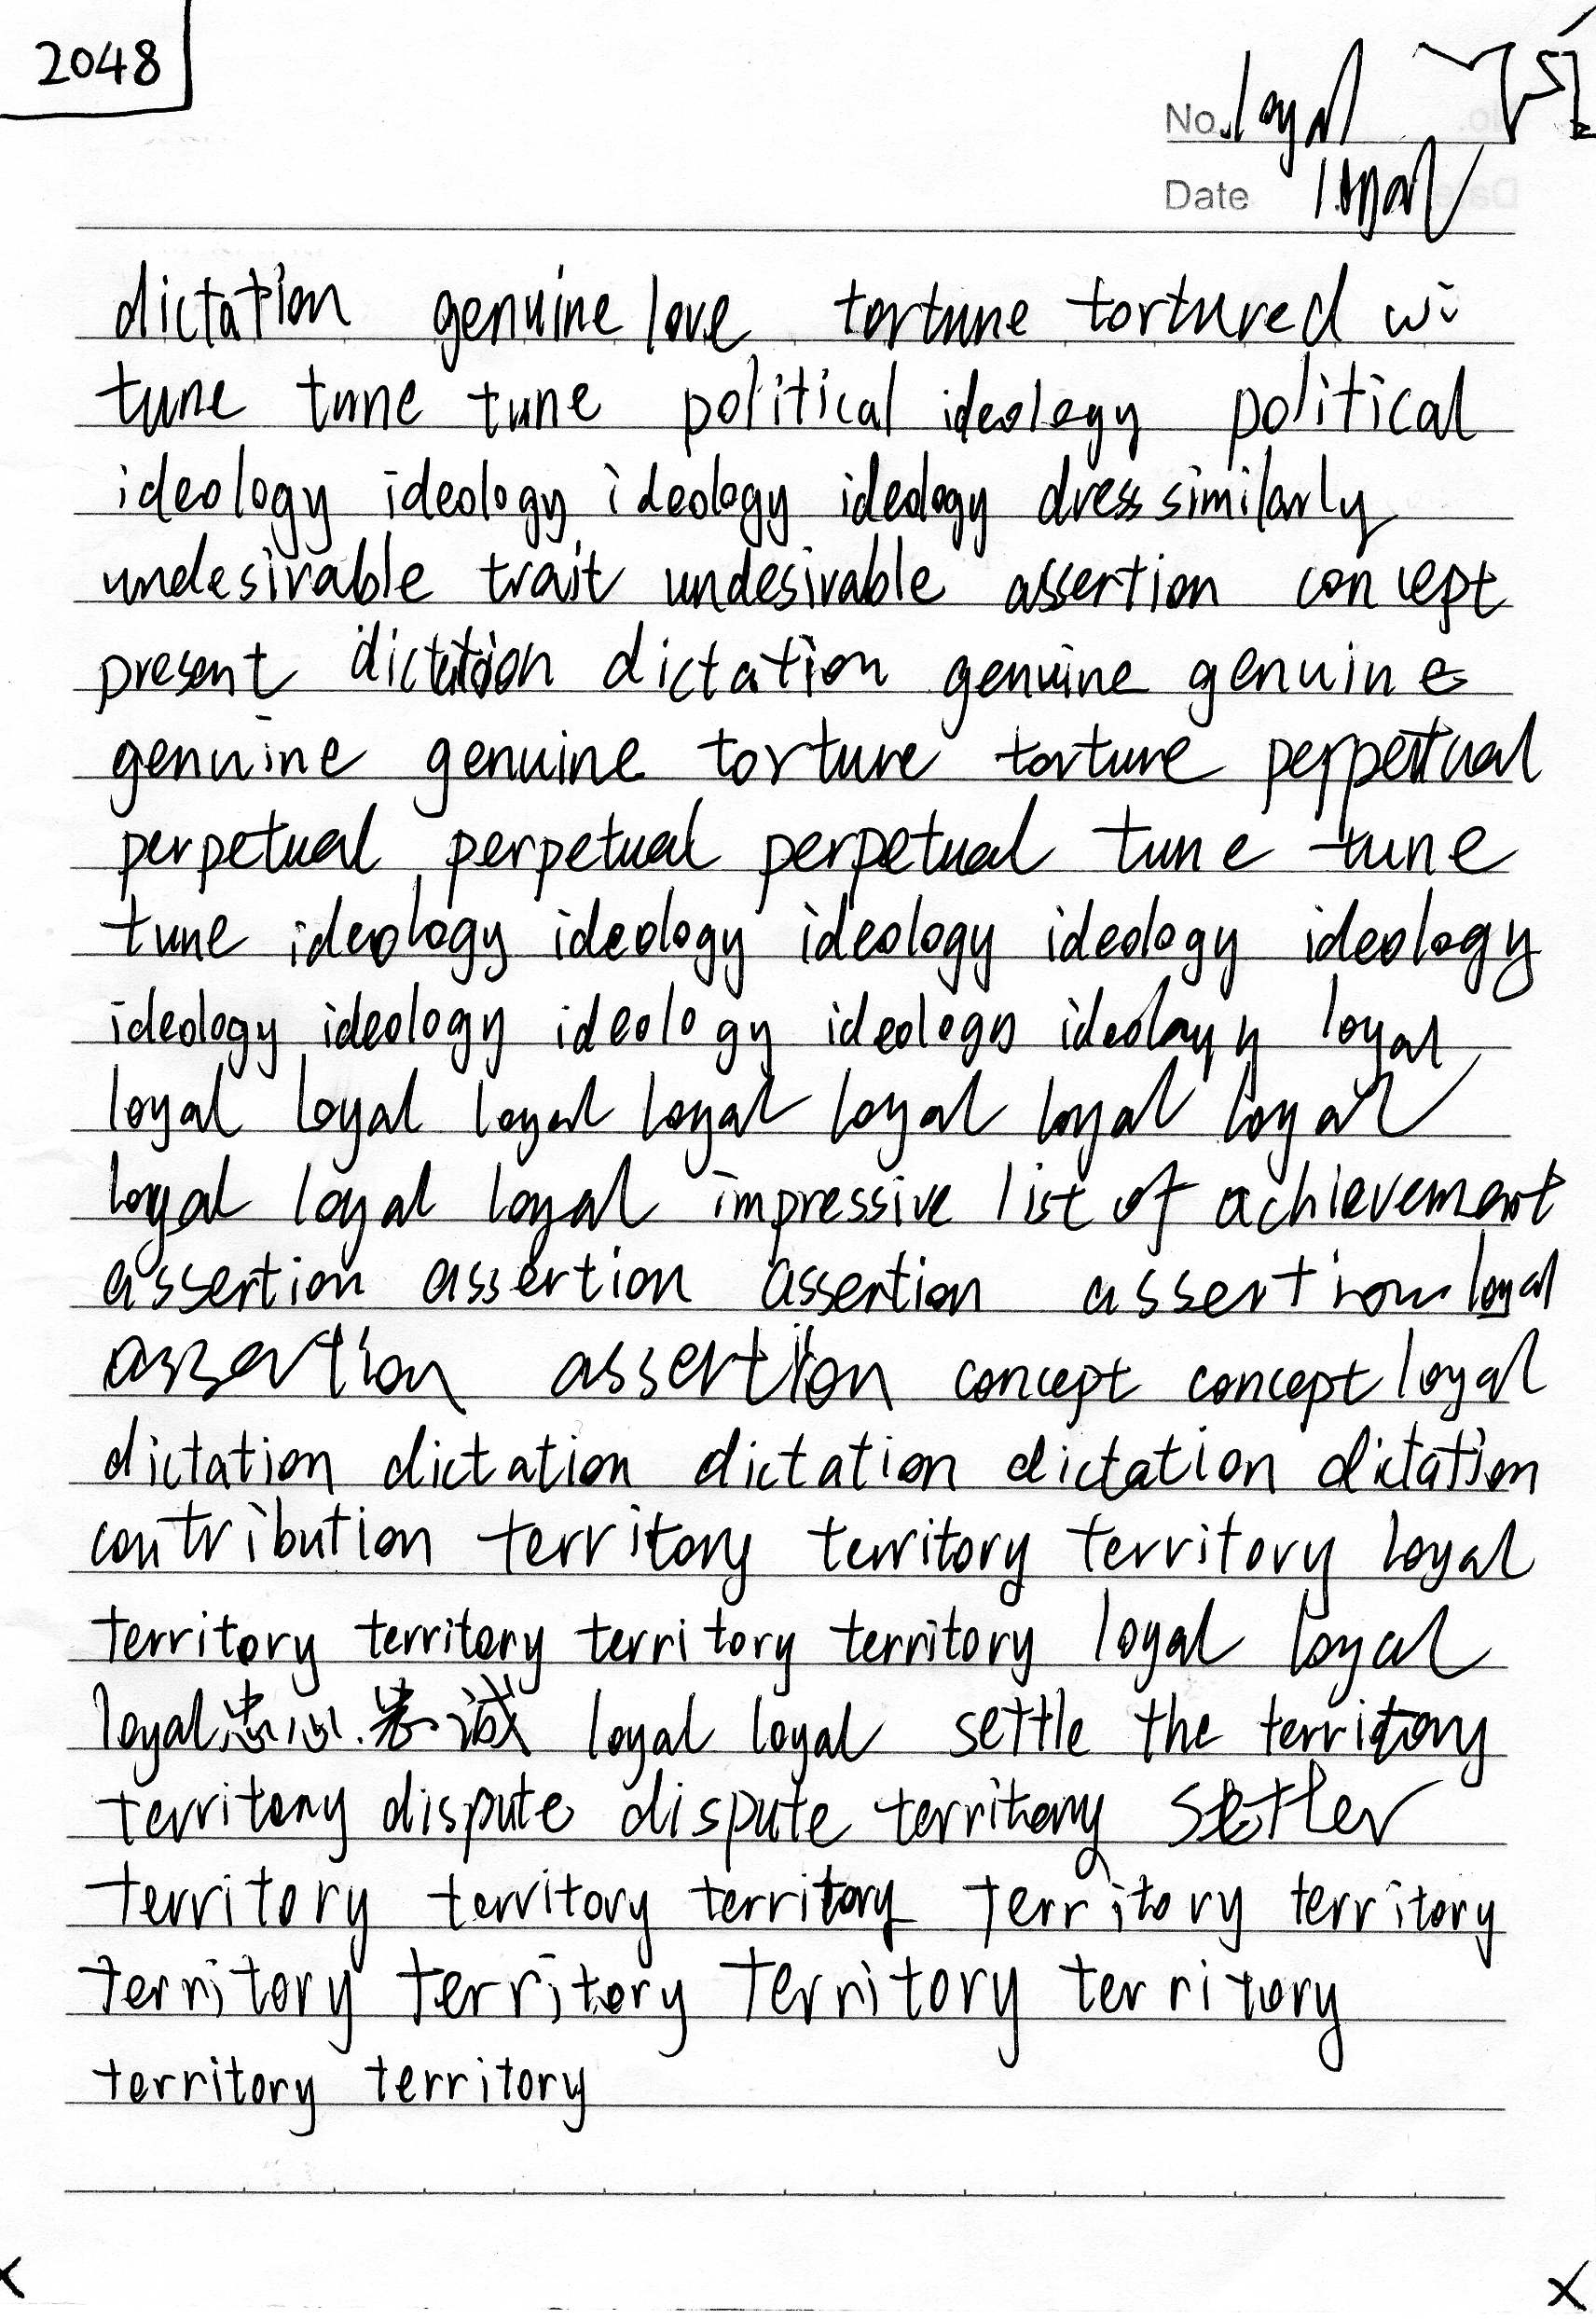 2048
No. loyal
Date loyal
dictation genuine love tortune tortured wi
tune tune tune political ideology political
ideology ideology ideology ideology dress similarly
undesirable trait undesirable assertion concept
present dictation dictation genuine genuine
genuine genuine torture torture perpetual
perpetual perpetual perpetual tune tune
tune ideology ideology ideology ideology ideology
ideology ideology ideology ideology ideology loyal
loyal loyal loyal loyal loyal loyal loyal
loyal loyal loyal impressive list of achievement
assertion assertion assertion assertion loyal
assertion assertion concept concept loyal
dictation dictation dictation dictation dictation
contribution territory territory territory loyal
territory territory territory territory loyal loyal
loyal 忠心. 忠诚 loyal loyal settle the territory
territory dispute dispute territory settler
territory territory territory territory territory
territory territory territory territory
territory territory